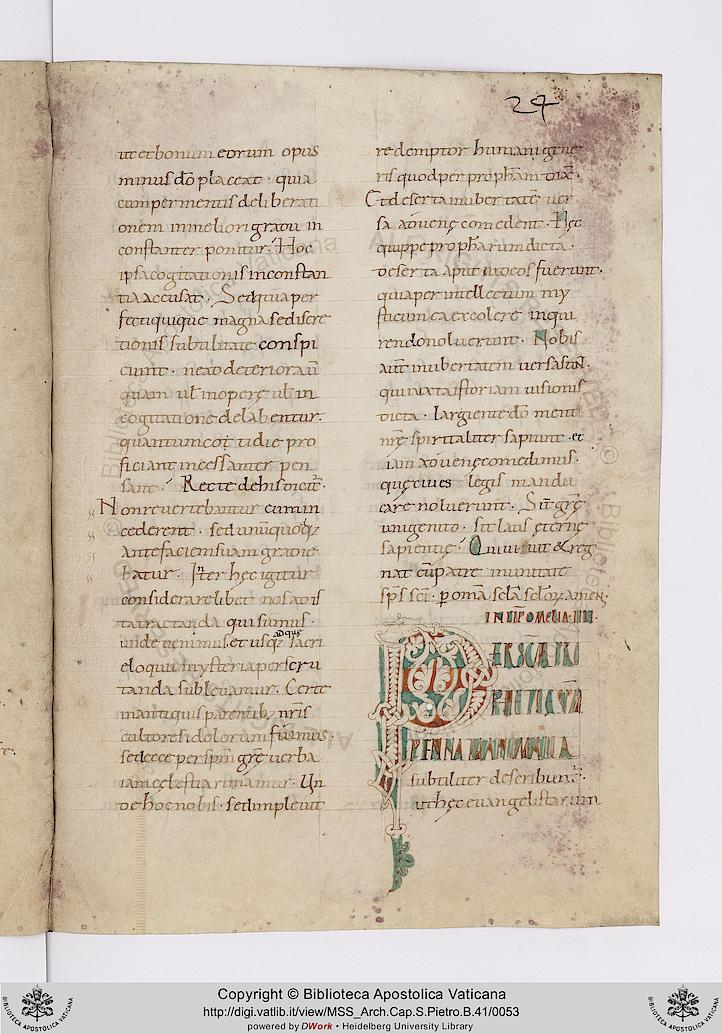 24
ut et bonum eorum opus
minus do placeat · quia
cum per mentis deliberati
onem in meliori gradu in
constanter ponitur · Hoc
ipsa cogitationis inconstan
tia accusat · Sed quia per
fecti quique magna se discre
tionis subtilitate conspi
ciunt · ne ad deteriora
quam ul in opere ul in
cogitatione delabentur ·
quantum cotidie pro
ficiant incessanter pen
sant · Recte de his dicit
Non revertebantur cum in
cederent · sed unu quoq;
ante faciem suam gradie
batur · Inter hec igitur
considerare libet nos a vis
ta tractanda qui sumus ·
unde venimus · et usq; ad qus sacri
eloquii mysteria perscru
tanda sublevamur · Certe
in antiquis parentib; nris
cultores idolorum fuimus ·
sed ecce per spm gre verba
iam celestia rimamur · Un
de hoc nobis · sed implevit
redemptor humani gene
ris quod per propham dixit
Et deserta in ubertate ver
sa advene comedent · Hec
quippe propharum dicta ·
deserta aput iudeos fuerunt ·
quia per intellectum my
sticum ea excolere inqui
rendo noluerunt · Nobis
aut in ubertatem versa st ·
qui iuxta istoriam visionis
dicta · largiente do menti
nre spiritaliter sapiunt · et
iam advene comedimus ·
que cives legis mandu
care noluerunt · Sit gre
unigenito · sit laus eterne
sapientie · Qui vivit & reg
nat cu patre in unitate
sps sci · p oma scla sclox amen ·
INCIP OMELIA · IIII ·
PER SCA
PENNATA ANIMALIA
subtiliter describunt ·
ut hec evangelistarum
Copyright © Biblioteca Apostolica Vaticana
http://digi.vatlib.it/view/MSS_Arch.Cap.S.Pietro.B.41/0053
powered by DWork • Heidelberg University Library